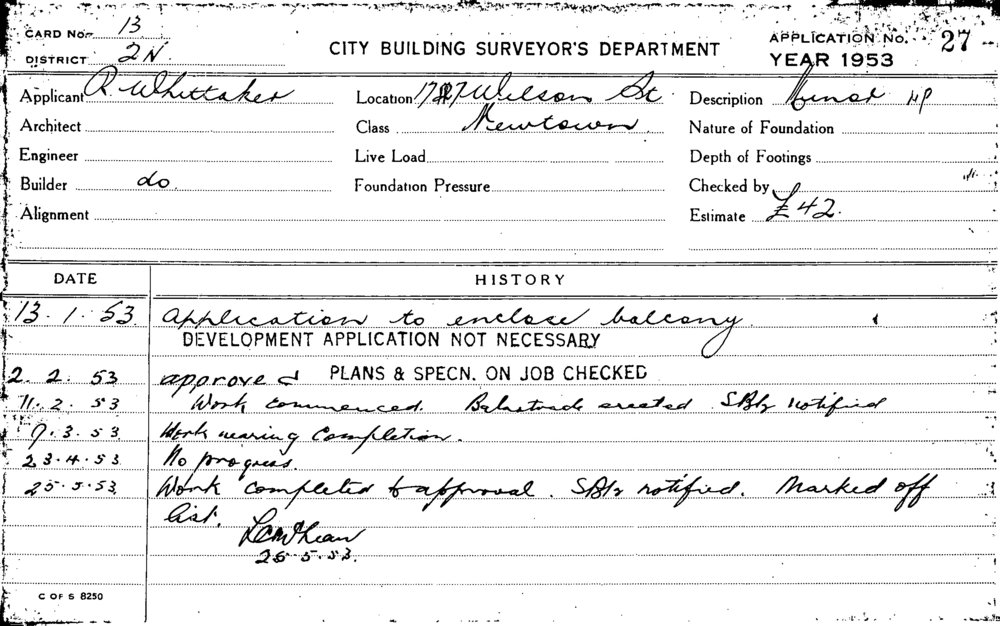 CARD No. 13
DISTRICT 2N
CITY BUILDING SURVEYOR'S DEPARTMENT
APPLICATION No. 27
YEAR 1953
Applicant R. Whittaker
Location Wilson St.
Description Minor
Architect
Class Newtown
Nature of Foundation
Engineer
Live Load
Depth of Footings
Builder do
Foundation Pressure
Checked by
Alignment
Estimate £42.
DATE HISTORY
13.1.53 Application to enclose balcony
DEVELOPMENT APPLICATION NOT NECESSARY
2.2.53 approved PLANS & SPECN. ON JOB CHECKED
11.2.53 Work commenced. Balustrade erected notified
9.3.53 Work nearing Completion.
23.4.53 No progress.
25.5.53 Work completed to approval. notified. Marked off
list.
25.5.53.
C OF S 8250